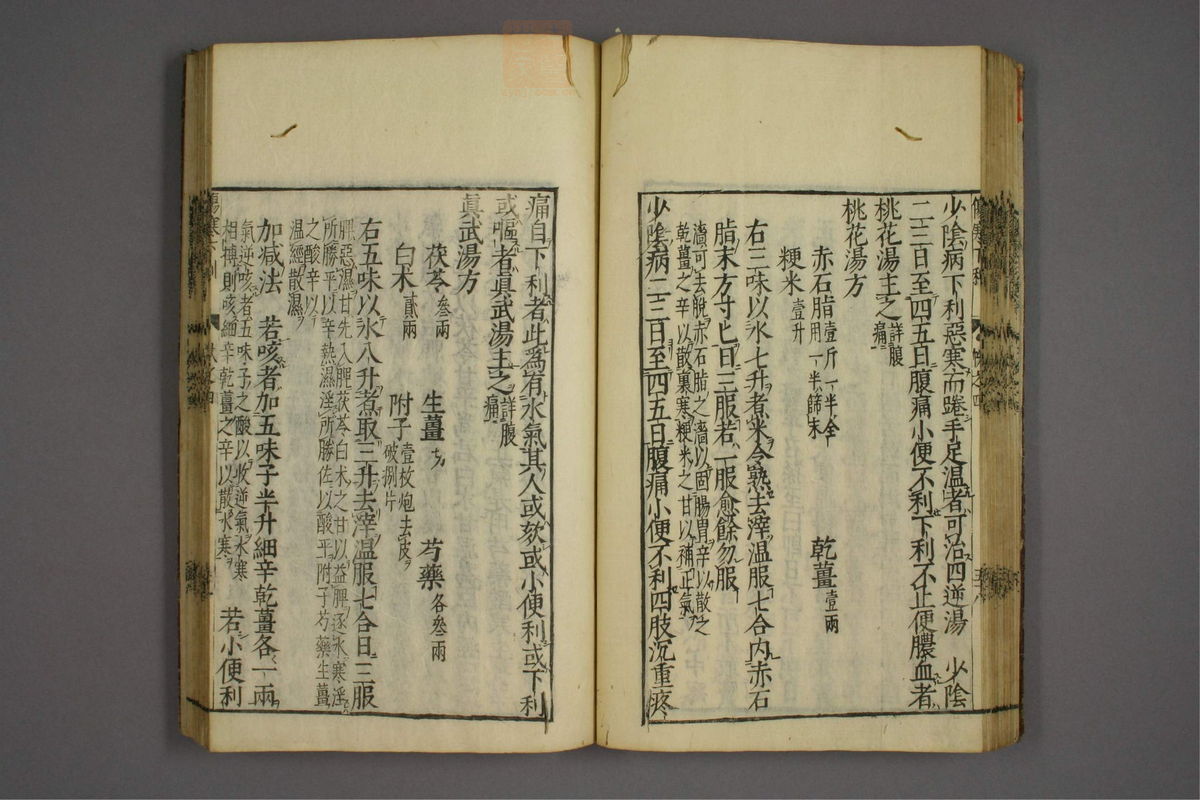 少陰病下利惡寒而踡手足溫者可治四逆湯　少陰
二三日至四五日腹痛小便不利下利不止便膿血者
桃花湯主之詳腹痛
桃花湯方
赤石脂壹斤一半全用一半篩末　乾薑壹兩
粳米壹升
右三味以水七升煮米令熟去滓溫服七合內赤石
脂末方寸匕日三服若一服愈餘勿服
濇可去脫赤石脂之濇以固腸胃辛以散之
乾薑之辛以散裏寒粳米之甘以補正氣
少陰病二三日至四五日腹痛小便不利四肢沉重疼
痛自下利者此為有水氣其人或欬或小便利或下利
或嘔者眞武湯主之詳腹痛
眞武湯方
茯苓叄兩　生薑切　芍藥各叄兩
白朮貳兩　附子壹枚炮去皮破捌片
右五味以水八升煮取三升去滓溫服七合日三服
脾惡濕甘先入脾茯苓白朮之甘以益脾逐水寒淫
所勝平以辛熱濕淫所勝佐以酸平附子芍藥生薑
之酸辛以
溫經散濕
加減法　若咳者加五味子半升細辛乾薑各一兩
氣逆咳者五味子之酸以收逆氣水寒
相搏則咳細辛乾薑之辛以散水寒
若小便利